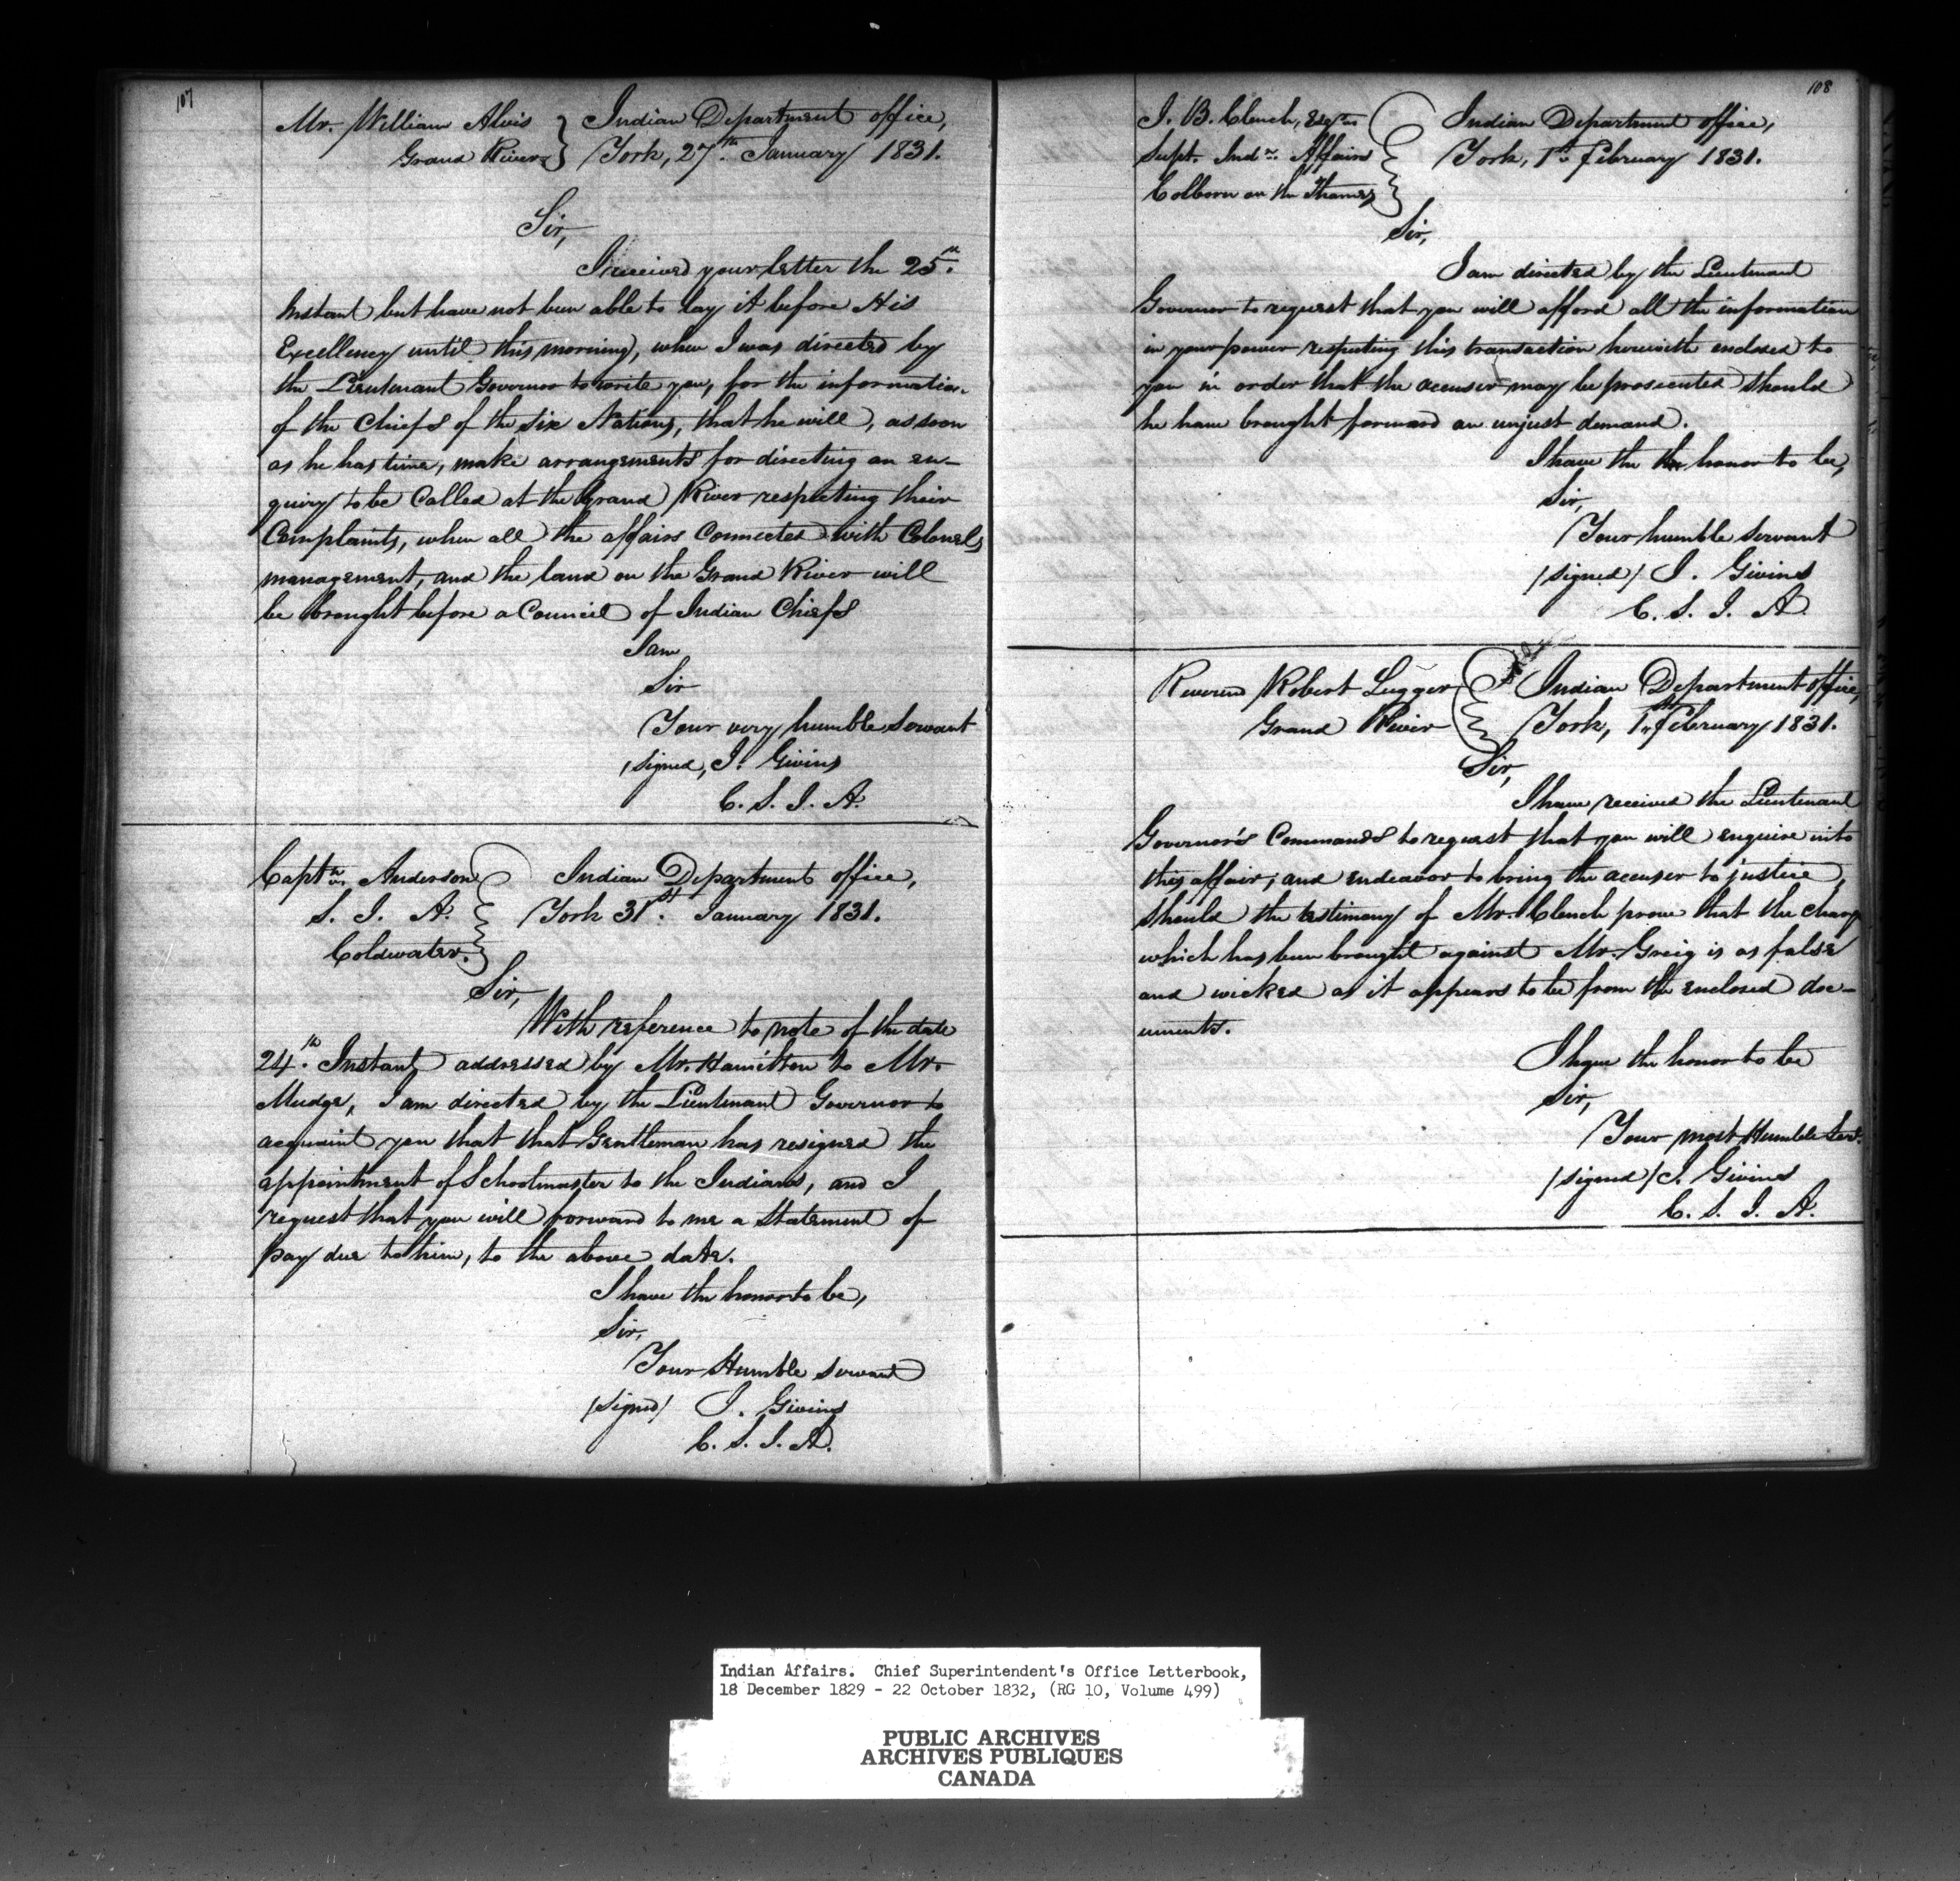 107
Mr. William Alvis } Indian Department office,
Grand River } York, 27th. January 1831.
Sir,
I received your letter the 25th.
Instant but have not been able to lay it before His
Excellency until this morning, when I was directed by
the Lieutenant Governor to write you, for the information
of the Chiefs of the Six Nations, that he will, as soon
as he has time, make arrangements for directing an en-
quiry to be Called at the Grand River respecting their
Complaints, when all the affairs Connected with Colonels
management, and the land on the Grand River will
be brought before a Council of Indian Chiefs
I am
Sir
Your very humble Servant
/signed, J. Givins
C. S. I. A.
Captn. Anderson } Indian Department office,
S. I. A. } York 31st. January 1831.
Coldwater. }
Sir,
With reference to note of the date
24th. Instant, addressed by Mr. Hamilton to Mr.
Mudge, I am directed by the Lieutenant Governor to
acquaint you that that Gentleman has resigned the
appointment of Schoolmaster to the Indians, and I
request that you will forward to me a Statement of
pay due to him, to the above date.
I have the honor to be,
Sir,
Your Humble servant
/signed/ J. Givins
C. S. I. A.
108
J. B. Clench, Esqre } Indian Department office,
Supt. Indn. Affairs } York, 1st February 1831.
Colborn on the Thames }
Sir,
I am directed by the Lieutenant
Governor to request that you will afford all the information
in your power respecting this transaction herewith enclosed to
you in order that the accuser may be prosecuted should
he have brought forward an unjust demand.
I have the the honor to be,
Sir,
Your humble Servant
/signed/ J. Givins
C. S. I. A.
Reverend Robert Lugger } Indian Department office,
Grand River } York, 1st February 1831.
Sir,
I have received the Lieutenant
Governor's Commands to request that you will enquire into
this affair; and endeavor to bring the accuser to justice,
should the testimony of Mr. Clench prove that the charge
which has been brought against Mr. Greig is as false
and wicked as it appears to be from the enclosed doc-
uments.
I have the honor to be
Sir,
Your most Humble Servt.
/signed/ J. Givins
C. S. I. A.
Indian Affairs. Chief Superintendent's Office Letterbook,
18 December 1829 - 22 October 1832, (RG 10, Volume 499)
PUBLIC ARCHIVES
ARCHIVES PUBLIQUES
CANADA